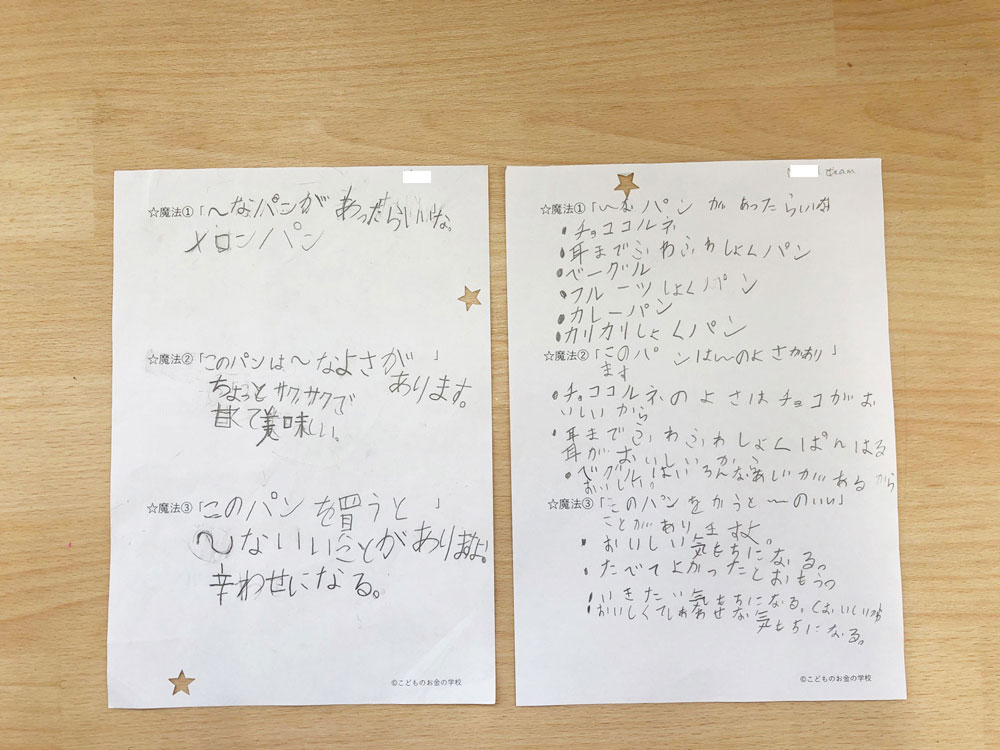 ☆魔法①「～なパンがあったらいいな。
メロンパン
☆魔法②「このパンは～なよさが」
あります。
ちょっとサクサクで
甘くて美味しい。
☆魔法③「このパンを買うと」
～ないいことがありますよ!
辛わせになる。
©こどものお金の学校
team
☆魔法①「～なパンがあったらいいな
・チョココルネ
・耳までふわふわしょくパン
・ベーグル
・フルーツしょくパン
・カレーパン
・カリカリしょくパン
☆魔法②「このパンは～のよさがあり」
ます
・チョココルネのよさはチョコがお
いしいから
・耳までふわふわしょくぱんはる
耳がおいしいから
・ベーグルはいろんなあじがあるから
おいしい。
☆魔法③「このパンをかうと～のいい」
ことがありますよ。
・おいしい気もちになる。
・たべてよかったとおもう。
・いきたい気もちになる。
・おいしくてしあわせな気もちになる。
©こどものお金の学校